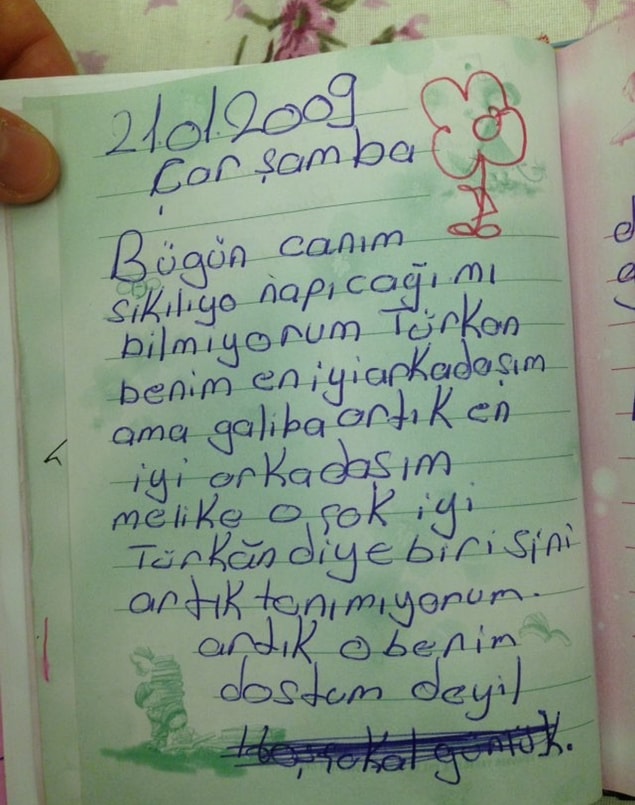 21.01.2009
Çarşamba
Bügün canım
sıkılıyo napıcağımı
bilmiyorum Türkan
benim eniyiarkadaşım
ama galiba artık en
iyi arkadaşım
melike o çok iyi
Türkan diye birisini
artık tanımıyorum.
artık o benim
dostum deyil
Hoşçakal günlük.